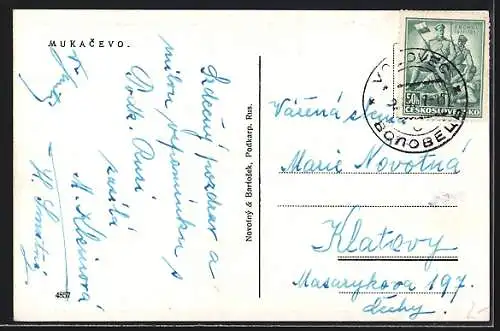 MUKAČEVO.
Srdečný pozdrav a
milou vzpomínku z
Podk. Rusi
zasílá
Novotný & Bartošek, Podkarp. Rus.
4837
50h
ČESKOSLOVENSKO
ВОЛОВЕЦЬ
Vážená slečna
Marie Novotná
Klatovy
Masarykova 197.
Čechy.